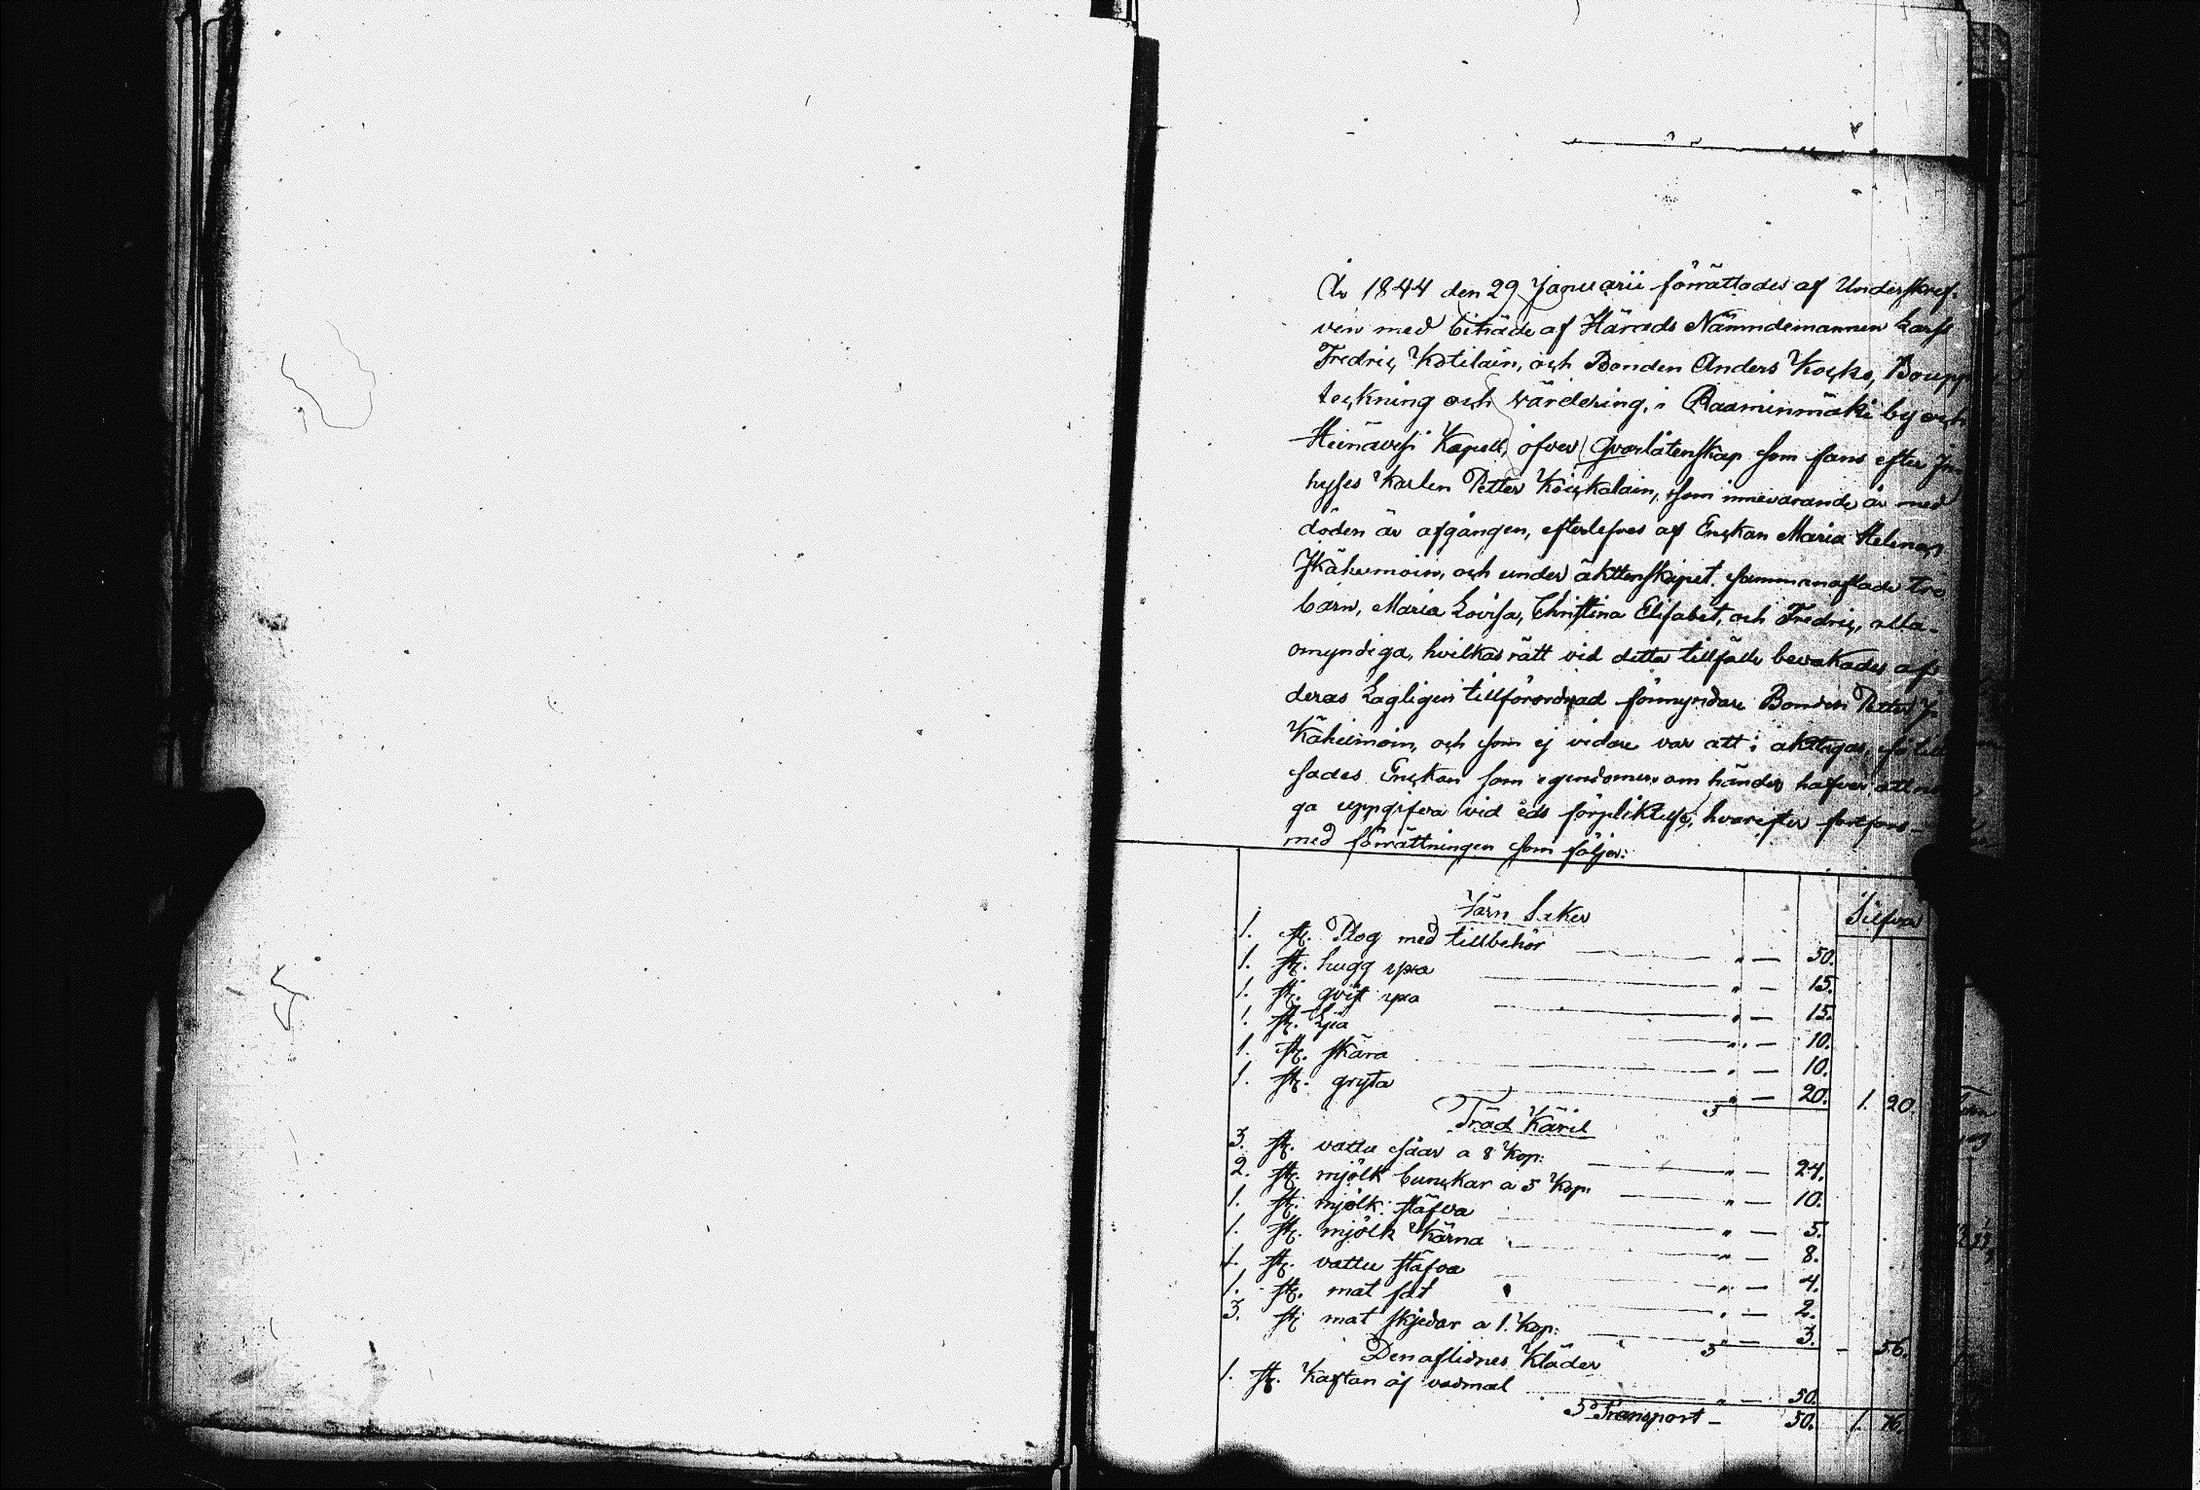 År 1844 den 29 Januarii förrättades af Underskref-
ven med biträde af Härads Nämndemannen Lars
Fredric Kotilain, och Bonden Anders Kocko, Boupp
teckning och värdering, i Raaminmäki by och
Heinävesi Kapell, öfver Qvarlåtenskap som fans efter In-
hyses Karlen Petter Koickalain, som innevarande år med
döden är afgången, efterlefves af Enckan Maria Helena
Ikäheimoin, och under äkttenskapet sammanaflade tre
barn, Maria Lovisa, Christina Elisabet, och Fredric, alla
omyndiga, hvilkas rätt vid detta tillfälle bevakades af
deras Lagligen tillförordnad förmyndare Bonden Petter I
Käheimoin, och som ej vidare var att i akttagas, så till
sades Enckan som egendomen om händer hafver att
ga uppgifva vid eds förpliktelse, hvarefter fortfors
med förrättningen som följer:
Järn Saker
Silfver
1. st. Plog med tillbehör " — 50.
1. st. hugg yxa " — 15.
1. st. qvist yxa " — 15.
1. st. Lia " — 10.
1. st. skära " — 10.
1. st. gryta " — 20. 1. 20.
Träd Käril
3. st. vattu såar a 8 Kop: " — 24.
2. st. mjölk bunckar a 5 Kop: " — 10.
1. st. mjölk stäfva " — 5.
1. st. mjölk Kärna " — 8.
1. st. vattu stäfva " — 4.
1. st. mat fat " — 2.
3. st. mat skjedar a 1. Kop: " — 3. - 56.
Den aflidnes Kläder
1. st. Kaftan af vadmal " — 50.
Transport — 50. 1. 76.